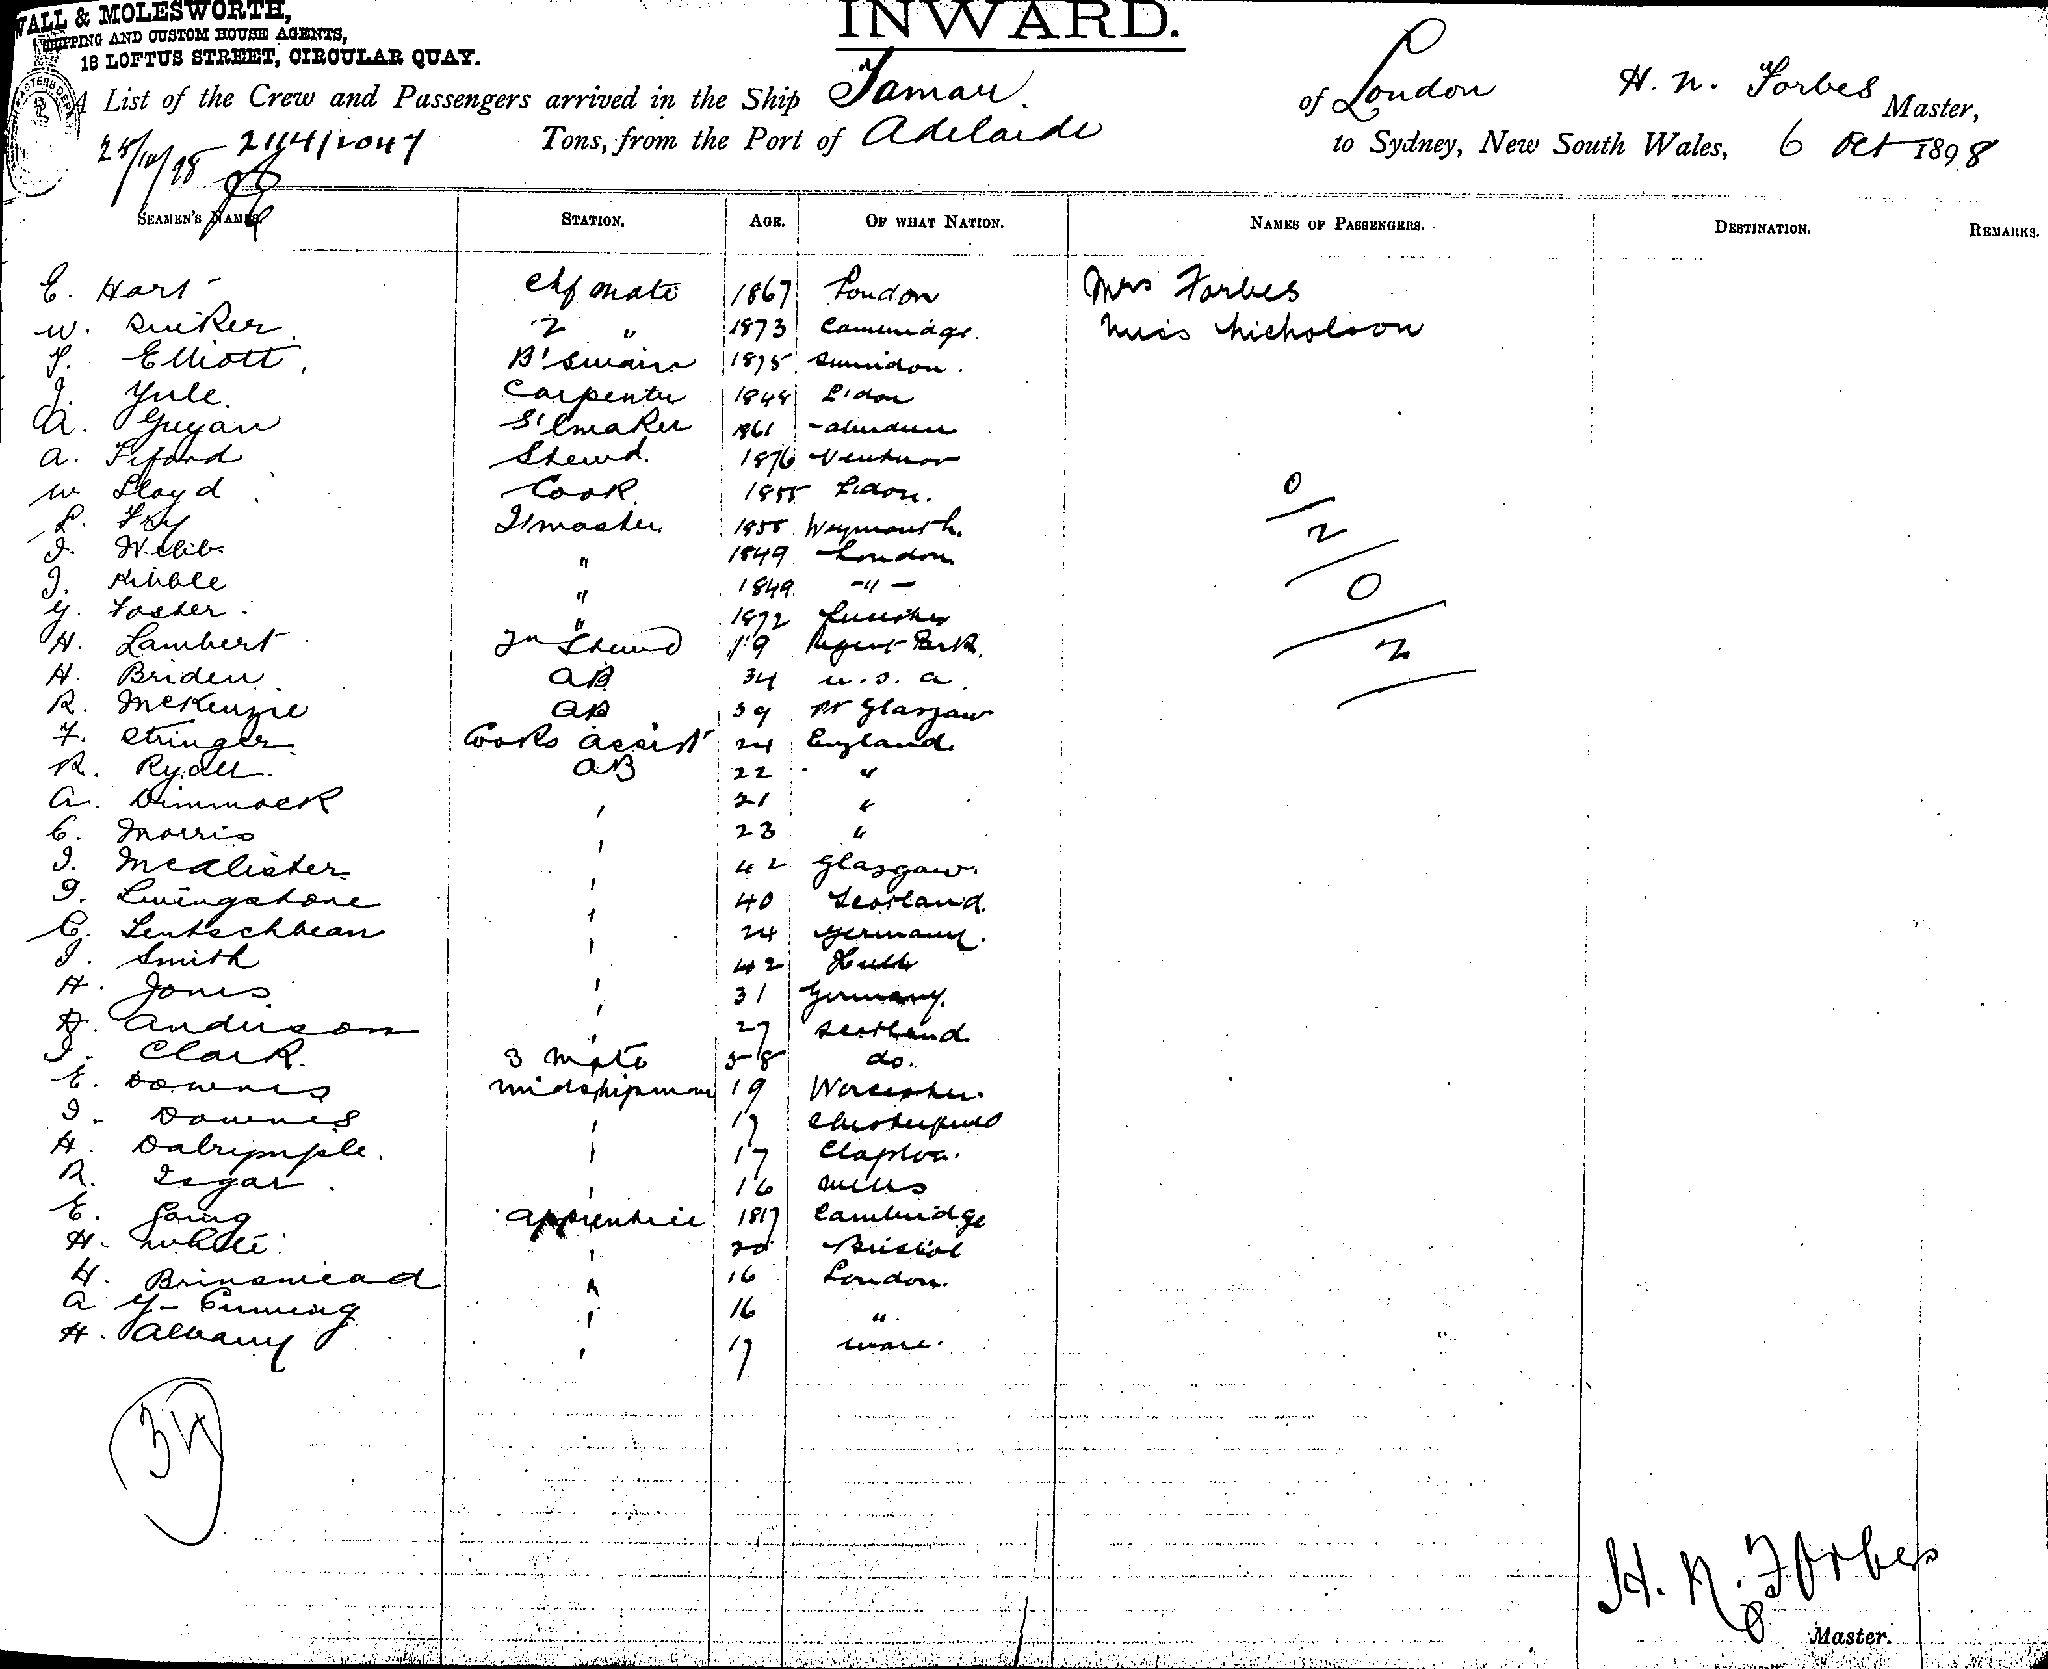 WALL & MOLESWORTH,
SHIPPING AND CUSTOM HOUSE AGENTS,
18 LOFTUS STREET, CIRCULAR QUAY.
INWARD.
A List of the Crew and Passengers arrived in the Ship Tamar. of London H. N. Forbes Master,
2114/2047 Tons, from the Port of Adelaide to Sydney, New South Wales, 6 Oct 1898
SEAMEN'S NAMES. STATION. AGE. OF WHAT NATION. NAMES OF PASSENGERS. DESTINATION. REMARKS.
E. Hart Chf mate 1867 London Mrs Forbes
W. 2 " 1873 Cambridge. Miss Nicholson
Elliott B'swain 1875 Swindon.
J. Yule. Carpenter 1848 L'don
A. Guyan S'lmaker 1861 Aberdeen
A. Stewd. 1876 Ventnor
W Lloyd Cook. 1855 L'don.
L. Fry Q'master 1855 Weymouth.
J. Webb " 1849 London
J. Kibble " 1849 - " -
G. Foster. " 1872
H. Lambert Stewd 19 Regent Park.
H. Briden AB 34 U.S.A.
R. McKenzie AB 39 Pt Glasgow
F. Stringer Cooks Assist 24 England.
R. Ryall. AB 22 "
A. Dimmock ' 21 "
C. Morris ' 23 "
J. McAlister ' 42 Glasgow.
J. Livingstone ' 40 Scotland.
C. ' 24 Germany.
J. Smith ' 42 Hull
H. Jones ' 31 Germany.
A. Anderson ' 27 Scotland
J. Clark. 3 Mate 58 do.
E. Downes Midshipman 19 Worcester.
J. Downes ' 17 Chesterfield
H. Dalrymple. ' 17 Clapton.
R. Isgar. ' 16 Wells
E. Apprentice 1817 Cambridge
H. White ' 20 Bristol
H. Brinsmead " 16 London.
A G- Cumming ' 16 "
H. Albany ' 17 Ware.
0/2/0/2/
34
H. N. Forbes
Master.